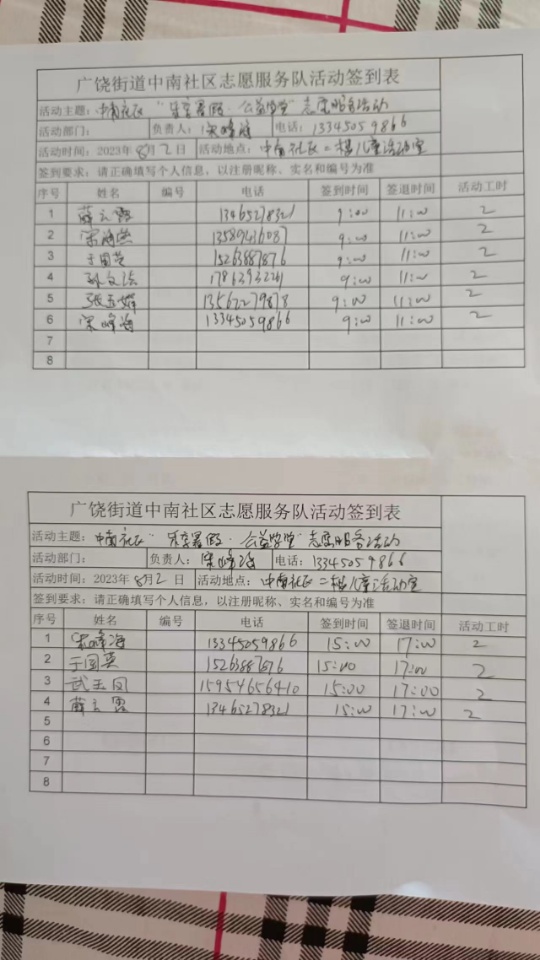 广饶街道中南社区志愿服务队活动签到表
活动主题：中南社区“乐享暑假·公益学堂”志愿服务活动
活动部门： 负责人：宋峰海 电话：13345059866
活动时间：2023年8月2日 活动地点：中南社区二楼儿童活动室
签到要求：请正确填写个人信息，以注册昵称、实名和编号为准
序号 姓名 编号 电话 签到时间 签退时间 活动工时
1 薛云霞 13465278321 9:00 11:00 2
2 宋 9:00 11:00 2
3 于国英 15263887876 9:00 11:00 2
4 孙文 9:00 11:00 2
5 张 9:00 11:00 2
6 宋峰海 13345059866 9:00 11:00 2
7
8
广饶街道中南社区志愿服务队活动签到表
活动主题：中南社区“乐享暑假·公益学堂”志愿服务活动
活动部门： 负责人：宋峰海 电话：13345059866
活动时间：2023年8月2日 活动地点：中南社区二楼儿童活动室
签到要求：请正确填写个人信息，以注册昵称、实名和编号为准
序号 姓名 编号 电话 签到时间 签退时间 活动工时
1 宋峰海 13345059866 15:00 17:00 2
2 于国英 15:00 17:00 2
3 武玉凤 15954656410 15:00 17:00 2
4 薛云霞 13465278321 15:00 17:00 2
5
6
7
8